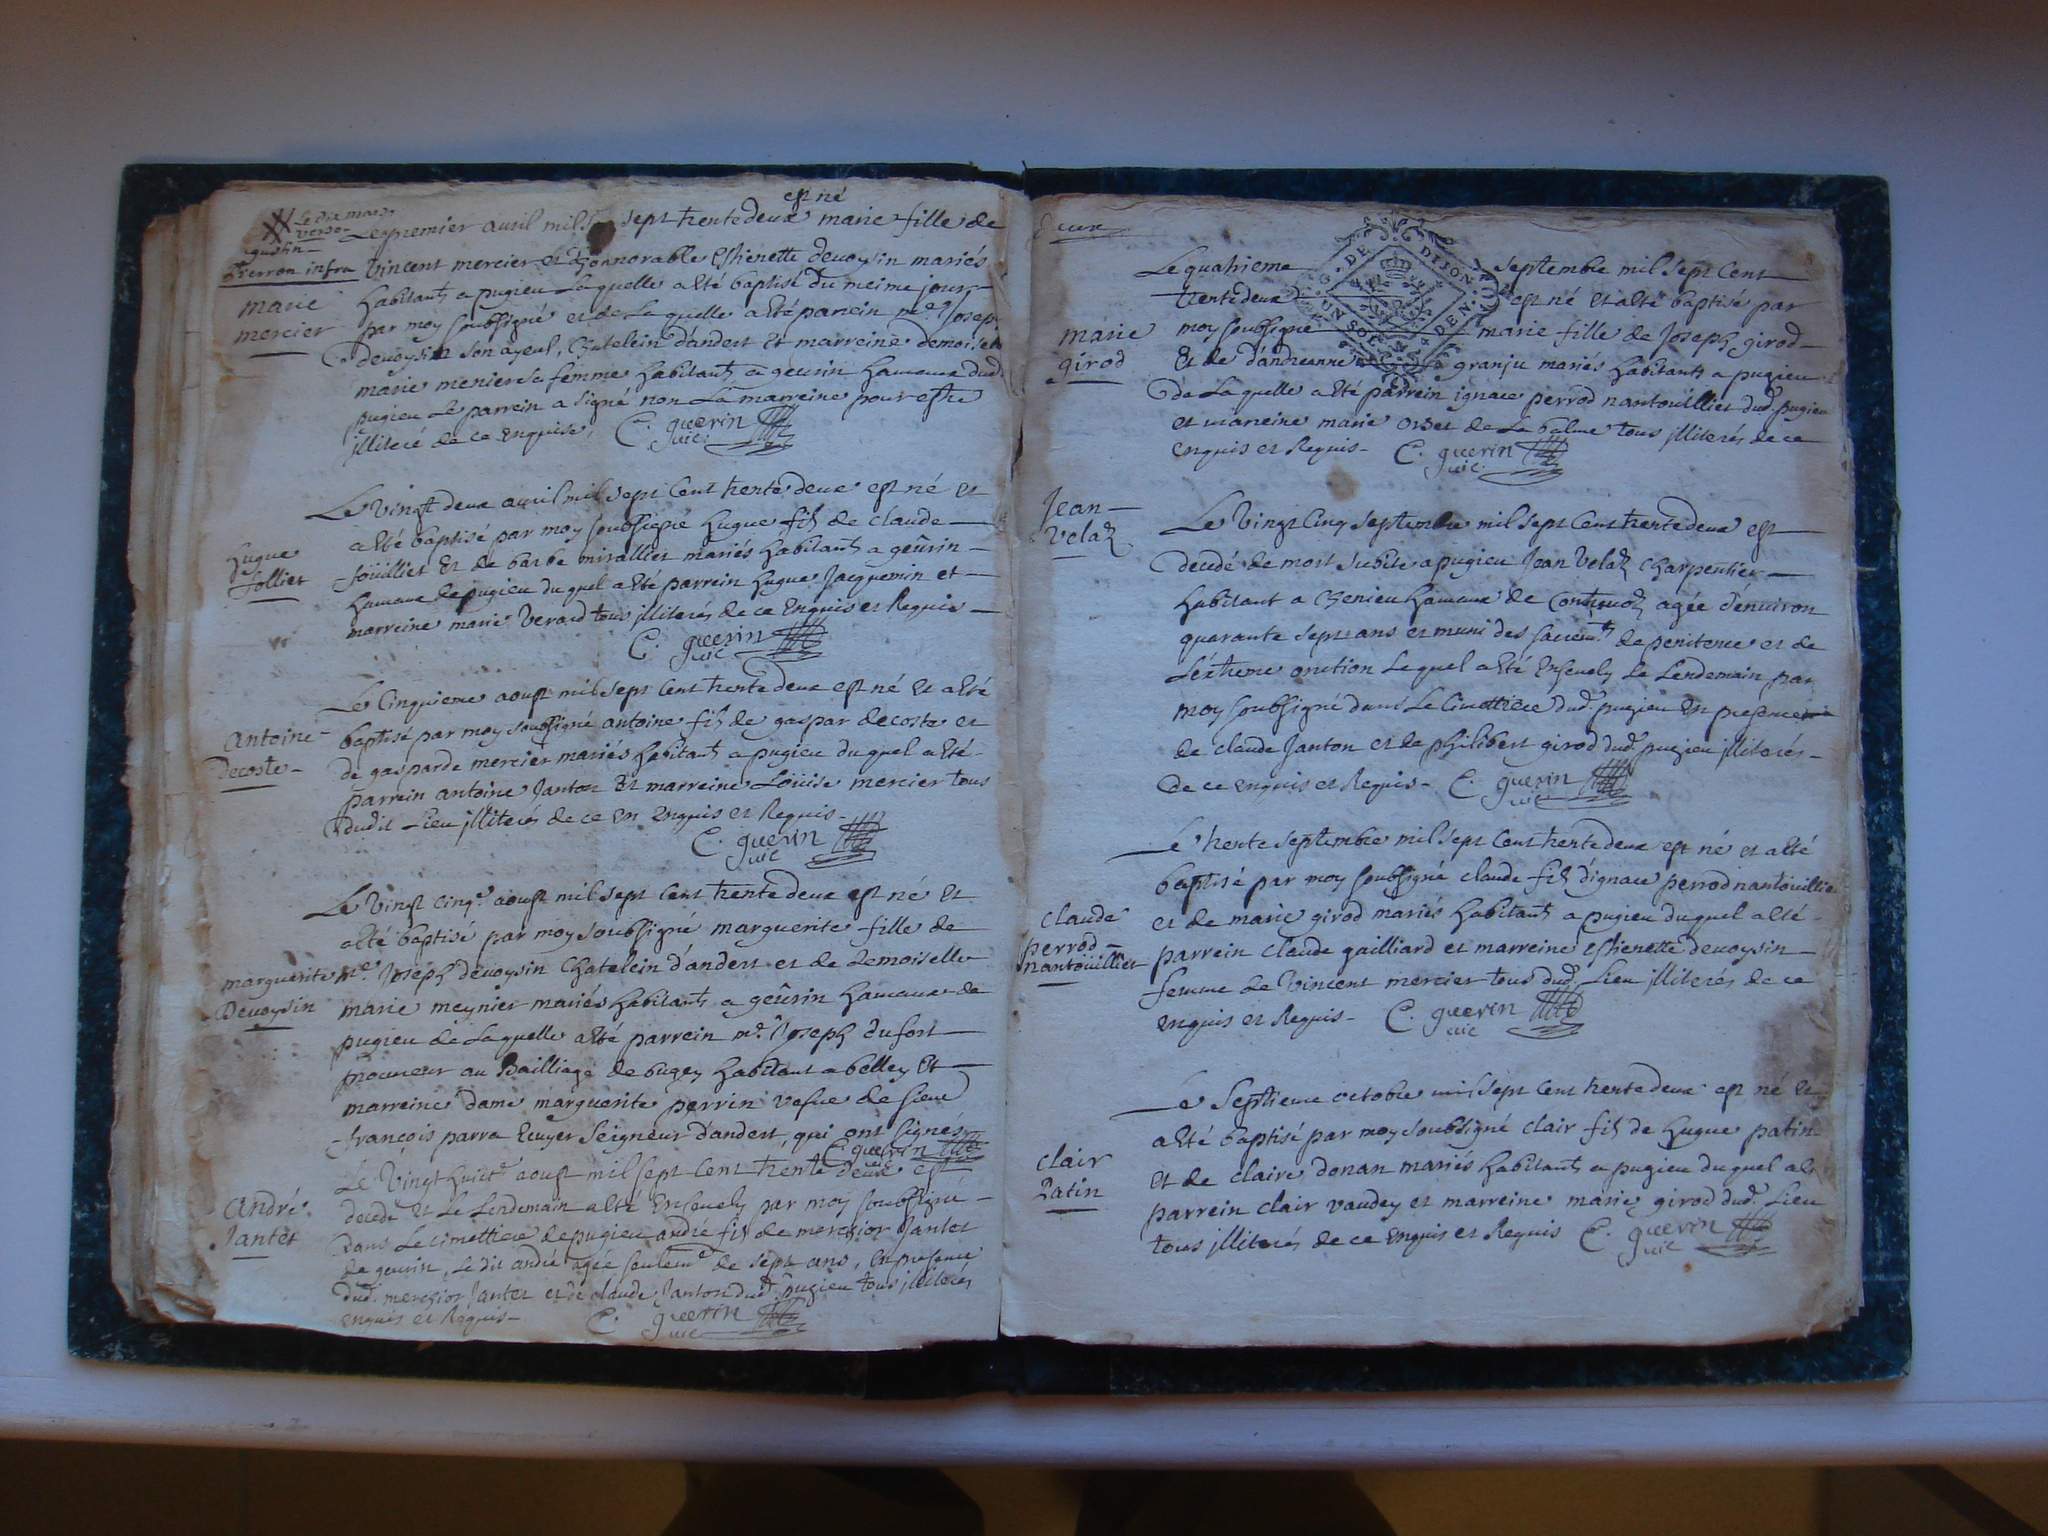 Le dix mars
verso
gustin
Pierron infra
est né
Le premier auril mil sept trente deux marie fille de
Vincent mercier et d'honnorable Estienette deuoysin mariés
marie
mercier
habitants a pugieu Laquelle a été baptisé du meime jour
par moy soubsigné et de La quelle a été parrein me Joseph
deuoysin son ayeul, Chatelein d'andert et marreine demoiselle
marie menier sa femme habitants a geurin hameaux dud
pugieu Le parrein a signé non La marreine pour estre
illiteré de ce enquise, C. guerin
vic.
Le vingt deux auril mil sept Cent trente deux est né et
a été baptisé par moy soubsigné hugue fils de claude
hugue
follier
foüillier et de barbe mirallier mariés habitants a geûrin
hameaux de pugieu duquel a été parrein hugue Jacquemin et
marreine marie Verard tous illiterés de ce Enquis et Requis
C. guerin
vic
Le Cinquieme aoust mil sept Cent trente deux est né et a été
antoine
decoste
baptisé par moy soubsigné antoine fils de gaspar decoste et
de gasparde mercier mariés habitants a pugieu duquel a été
parrein antoine Janton et marreine Loüise mercier tous
dudit Lieu illiterés de ce en enquis et Requis
C. guerin
vic
Le Vingt cinqe aoust mil sept Cent trente deux est né et
a été baptisé par moy soubsigné marguerite fille de
marguerite
Deuoysin
me Joseph deuoysin Chatelein d'andert et de demoiselle
marie meynier mariés habitants a geûrin hameaux de
pugieu de Laquelle a été parrein me Joseph dufort
procureur au Bailliage de bugey habitant a belley et
marreine dame marguerite perrin vefue de sieur
françois parra Ecuyer Seigneur d'andert, qui ont signés
C. guerin
vic
Le Vingt huicte aoust mil sept Cent trente deux est
andré
Jantet
decedé et Le Lendemain a été Enseuely par moy soubsigné
dans Le cimettiere de pugieu andré fils de merchior Jantet
de geurin, Le dit andré agée seulemt de sept ans, en presence
dud. merchior Jantet et de claude Janton dud. pugieu tous illiterés
enquis et Requis C. guerin
vic
deux
G. DE DIJON
UN SOL DEN.
Le quatrieme septembre mil sept Cent
trente deux est né et a été baptisé par
marie
girod
moy soubsigné marie fille de Joseph girod
et de d'andreanne granju mariés habitants a pugieu
de La quelle a été parrein ignace perrod nantouillier dud. pugieu
et marreine marie orset de La balme tous illiterés de ce
enquis et Requis C. guerin
vic.
Jean
Velat
Le Vingt Cinq septembre mil sept Cent trente deux est
decedé de mort subite a pugieu Jean Velat Charpentier
habitant a Chenieu hameaux de Contreuoz agée d'enuiron
quarante sept ans et muni des sacremts de penitence et de
L'extreme onction Lequel a été Enseuely Le Lendemain par
moy soubsigné dans Le Cimettiere dud. pugieu en presence
de claude Janton et de philibert girod dud. pugieu illiterés
de ce enquis et Requis C. guerin
vic
Le trente septembre mil sept Cent trente deux est né et a été
baptisé par moy soubsigné claude fils d'ignace perrod nantouillier
claude
perrod
nantoüillier
et de marie girod mariés habitants a pugieu duquel a été
parrein claude gailliard et marreine Estienette deuoysin
femme de Vincent mercier tous dud. Lieu illiterés de ce
enquis et Requis C. guerin
vic
Le Septieme octobre mil sept Cent trente deux est né et
a été baptisé par moy soubsigné clair fils de hugue patin
clair
Patin
et de claire donan mariés habitants a pugieu duquel a été
parrein clair vaudey et marreine marie girod dud. Lieu
tous illiterés de ce enquis et Requis C. guerin
vic